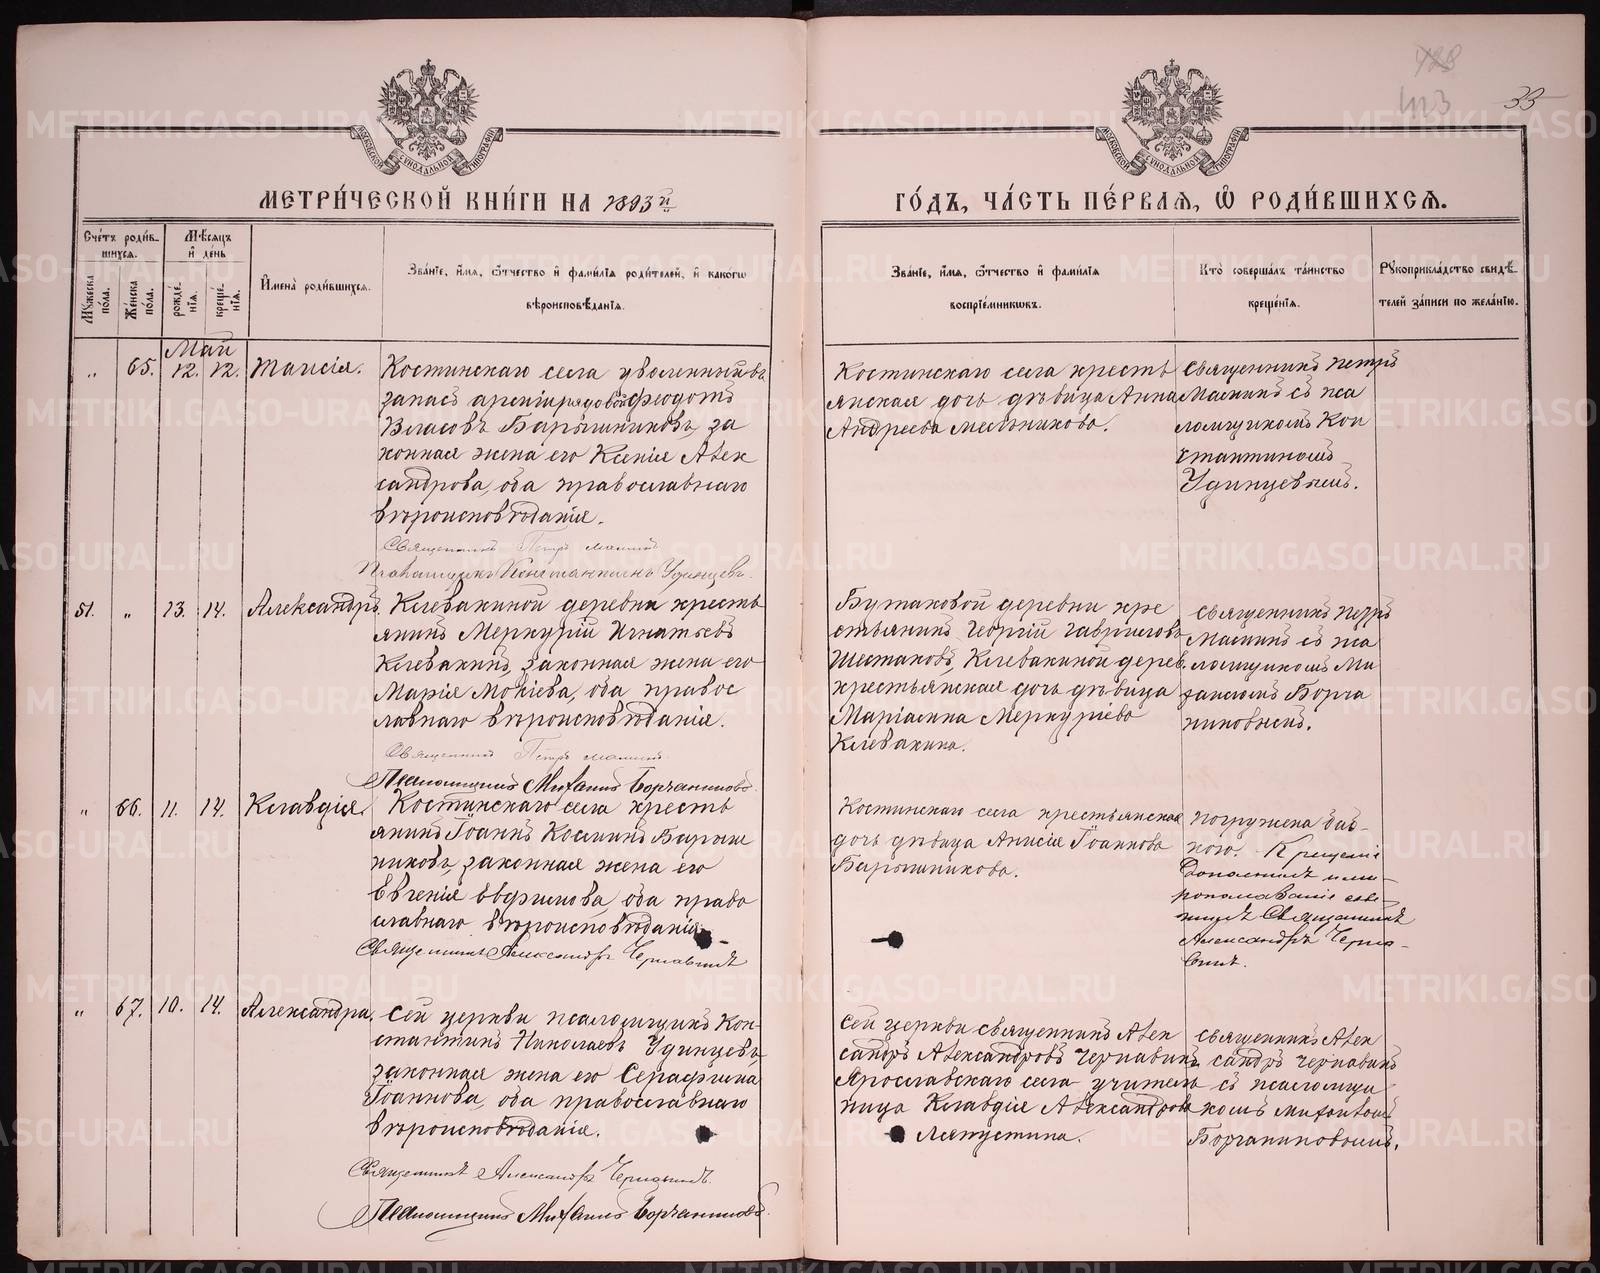 423
33
МЕТРИ́ЧЕСКОЙ КНИ́ГИ НА 1893 й
ГО́ДЪ, ЧА́СТЬ ПЕ́РВАЯ, Ѡ҆ РОДИ́ВШИХСЯ.
Сче́тъ роди́в-
шихся.
Мѣ́сяцъ
и҆ де́нь
Мꙋ́жеска
пола.
Же́нска
пола.
рожде́-
нія.
креще́-
нія.
И҆мена̀ роди́вшихся.
Зва́ніе, и҆́мя, ѻ҆́тчество и҆ фами́лія роди́телей, и҆ како́гѡ
вѣроисповѣ́данія.
Зва́ніе, и҆́мя, ѻ҆́тчество и҆ фами́лія
воспріе́мникѡвъ.
Кто̀ соверша́лъ та́инство
креще́нія.
Рꙋкоприкла́дство свидѣ́-
телей за́писи по жела́нію.
Май
„ 65. 12. 12. Таисія.
Костинскаго села уволенный въ
запасъ арміи рядовой Феодотъ
Власовъ Барышниковъ, за
конная жена его Ксенія Алек
сандрова, оба православнаго
вѣроисповѣданія.
Священникъ Петръ Маминъ
Псаломщикъ Константинъ Удинцевъ.
Костинскаго села кресть
янская дочь дѣвица Анна
Андреева Мельникова.
Священникъ Петръ
Маминъ съ пса
ломщикомъ Кон
стантиномъ
Удинцевымъ.
51. „ 13. 14. Александръ.
Клевакиной деревни кресть
янинъ Меркурій Игнатьевъ
Клевакинъ, законная жена его
Марія Мокіева, оба правос
лавнаго вѣроисповѣданія.
Священникъ Петръ Маминъ
Псаломщикъ Михаилъ Борчаниновъ.
Бутаковой деревни кре
стьянинъ Георгій Гавриловъ
Шестаковъ, Клевакиной дерев.
крестьянская дочь дѣвица
Маріамна Меркуріева
Клевакина.
Священникъ Петръ
Маминъ съ пса
ломщикомъ Ми
хаиломъ Борча
ниновымъ.
„ 66. 11. 14. Клавдія.
Костинскаго села кресть
янинъ Іоаннъ Косминъ Барыш
никовъ, законная жена его
Евгенія Евфимова, оба право
славнаго вѣроисповѣданія.
Священникъ Александръ Чернавинъ
Костинскаго села крестьянская
дочь дѣвица Анисія Іоаннова
Барышникова.
Погружена баб-
кою. Крещеніе
дополнилъ и ми-
ропомазаніе совер-
шилъ Священникъ
Александръ Черна-
винъ.
„ 67. 10. 14. Александра.
Сей церкви псаломщикъ Кон-
стантинъ Николаевъ Удинцевъ,
законная жена его Серафима
Іоаннова, оба православнаго
вѣроисповѣданія.
Священникъ Александръ Чернавинъ.
Псаломщикъ Михаилъ Борчаниновъ.
Сей церкви священникъ Алек
сандръ Александровъ Чернавинъ,
Ярославскаго села учитель
ница Клавдія Александрова
Ляпустина.
Священникъ Алек
сандръ Чернавинъ
съ псаломщи
комъ Михаиломъ
Борчаниновымъ.
METRIKI.GASO-URAL.RU